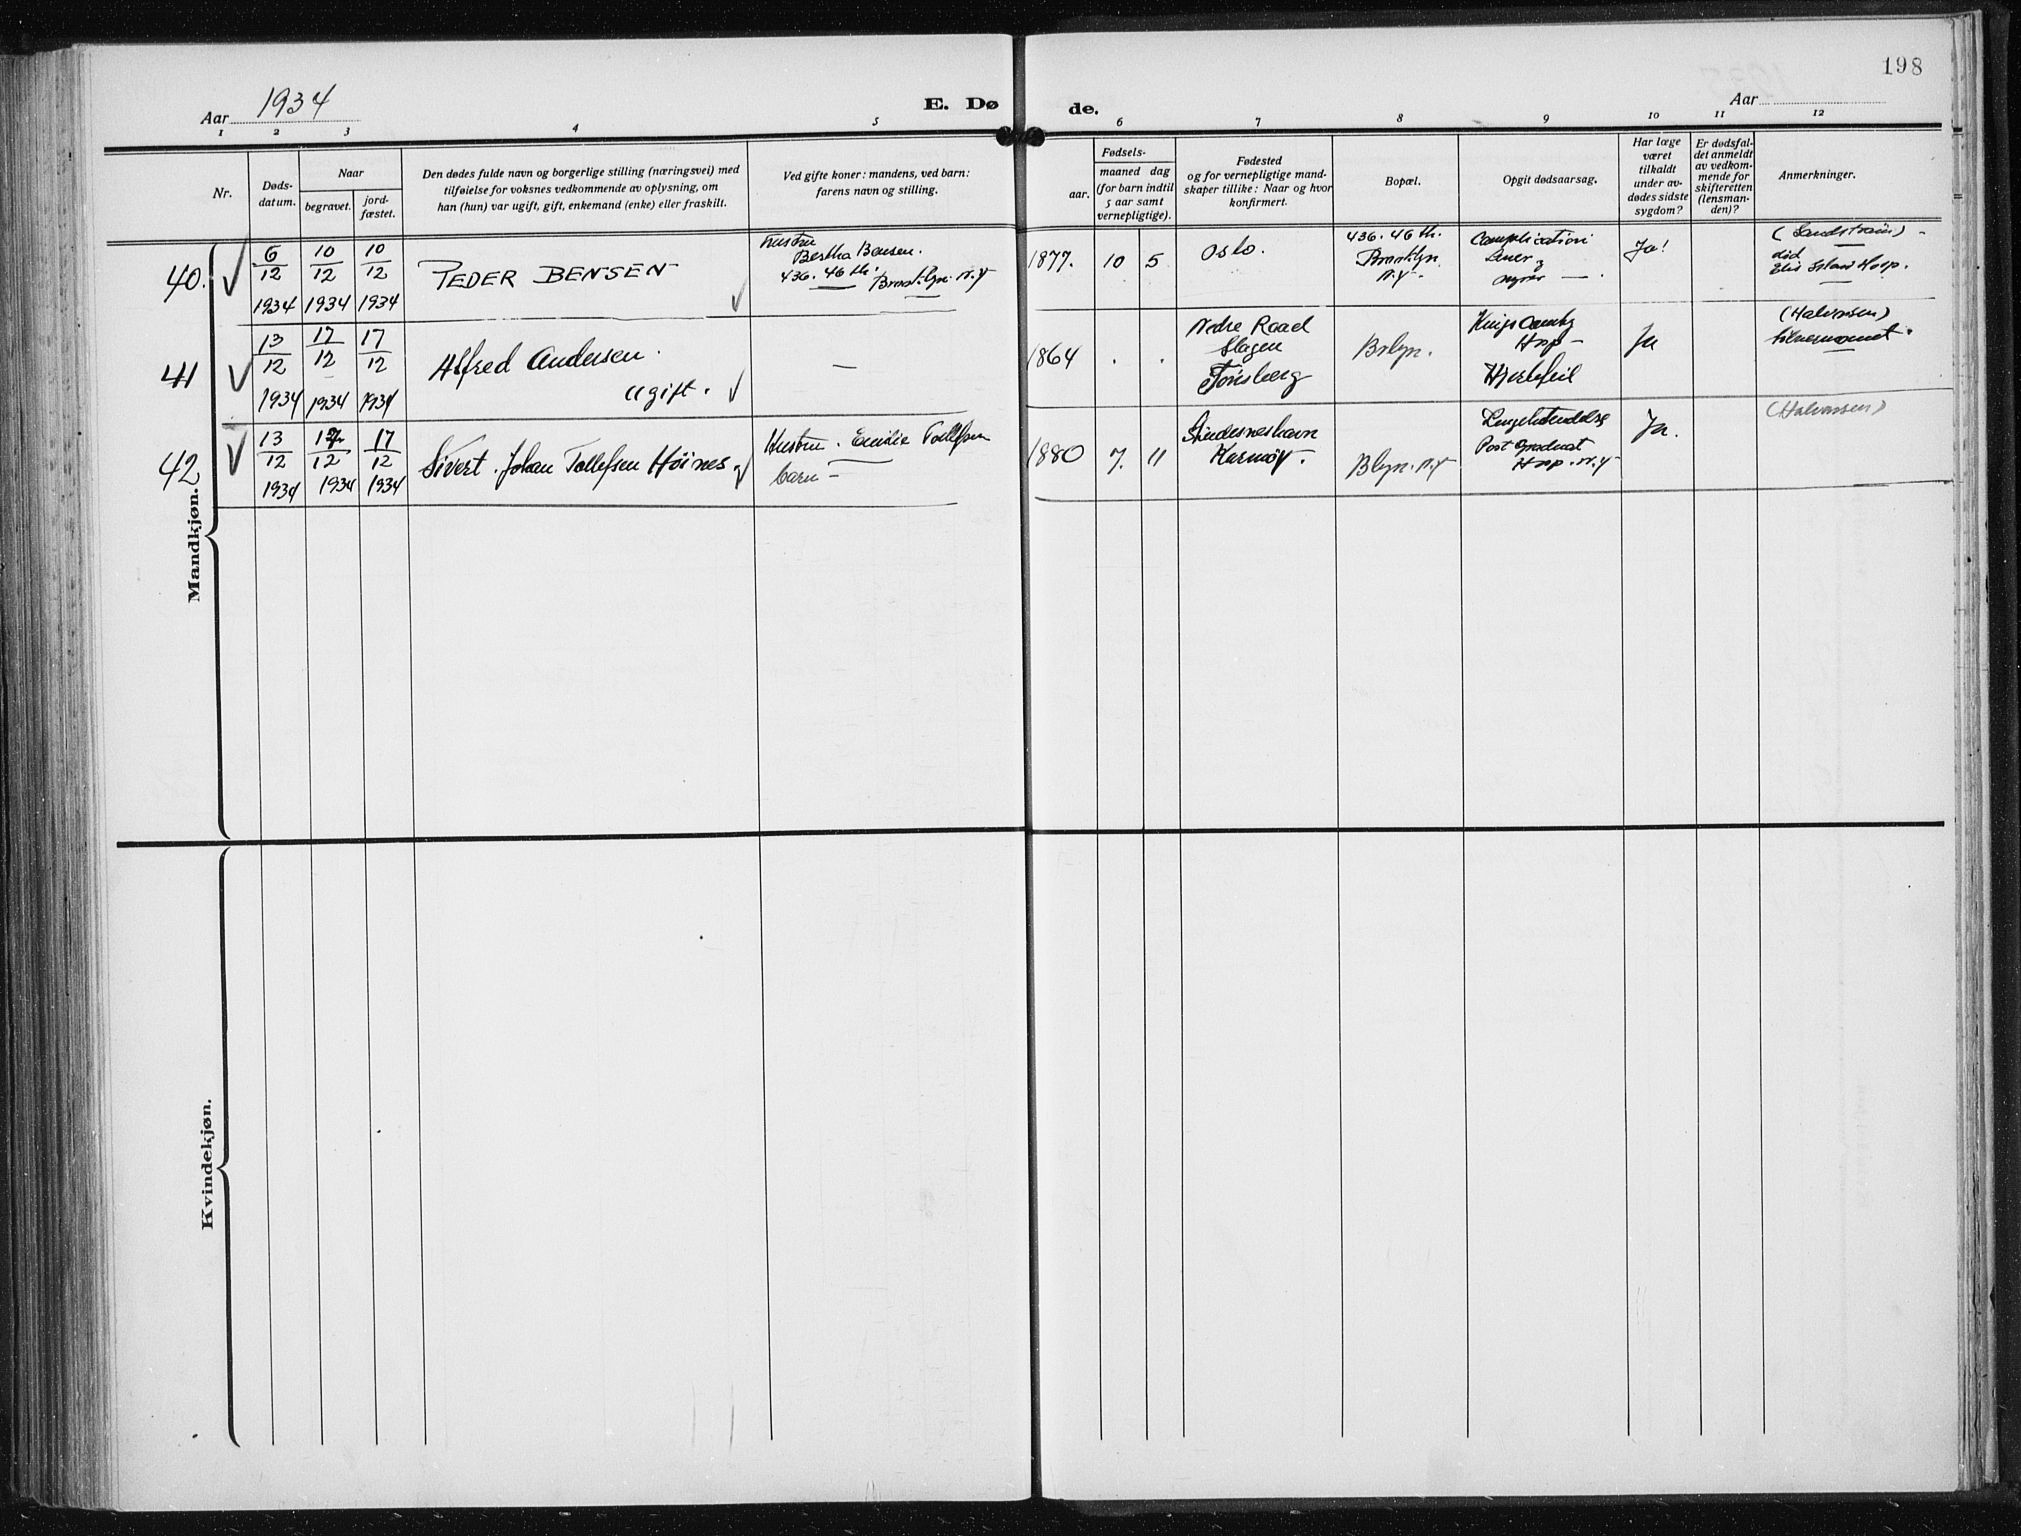 198
Aar 1934
E. Døde.
Aar
1 2 3 4 5 6 7 8 9 10 11 12
Nr.
Døds-
datum.
Naar
begravet.
jord-
fæstet.
Den dødes fulde navn og borgerlige stilling (næringsvei) med
tilføielse for voksnes vedkommende av oplysning, om
han (hun) var ugift, gift, enkemand (enke) eller fraskilt.
Ved gifte koner: mandens, ved barn:
farens navn og stilling.
Fødsels-
aar.
maaned dag
(for barn indtil
5 aar samt
vernepligtige).
Fødested
og for vernepligtige mand-
skaper tillike: Naar og hvor
konfirmert.
Bopæl.
Opgit dødsaarsag.
Har læge
været
tilkaldt
under av-
dødes sidste
sygdom?
Er dødsfal-
det anmeldt
av vedkom-
mende for
skifteretten
(lensman-
den)?
Anmerkninger.
Mandkjøn.
40.
6/12 1934
10/12 1934
10/12 1934
PEDER BENSEN
Hustru
Bertha Bensen.
436. 46 th.
Brooklyn. N.Y
1877. 10 5
Oslo.
436. 46 th.
Brooklyn.
N.Y.
Complication
Lever
og
nyrer
Ja!
(Sandstrøm)
død
Elis Island Hosp.
41
13/12 1934
17/12 1934
17/12 1934
Alfred Andersen.
ugift.
—
1864 . .
Nedre Raad
Slagen
Tønsberg
Bklyn.
Kings County
Hosp –
Hjertefeil
Ja
(Halvorsen)
42
13/12 1934
17/12 1934
17/12 1934
Sivert. Johan Tollefsen Höines
Hustru. Emilie Tollefsen
barn –
1880 7. 11
Karmøy.
Blyn. N.Y
Lungebetendelse
Post Graduat
Hosp. N.Y
Ja.
(Halvorsen)
Kvindekjøn.